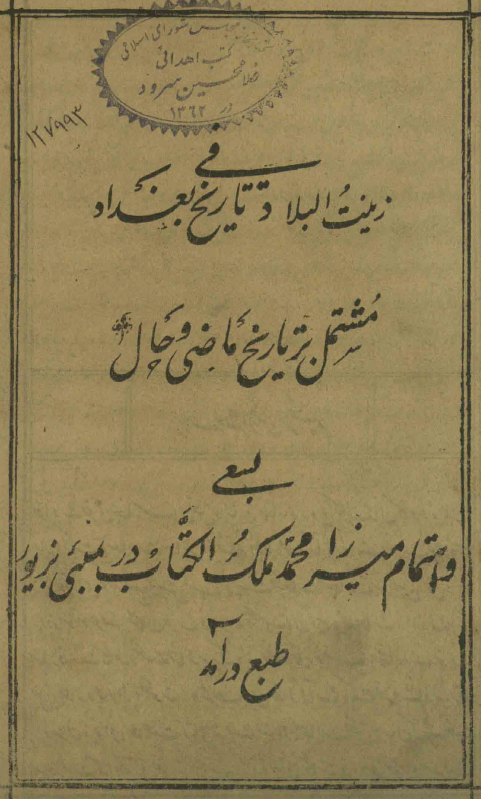 کتب اهدائی
غلامحسین سرود
در ۱۳۶۲
۱۲۷۹۹۳
فی
زینتُ البلاد تاریخ بغداد
مُشتمل بر تاریخ ماضی و حال
بسعی
و اهتمام میرزا محمّد ملکُ الکتَّاب در بمبئی بزیور
طبع درآمد